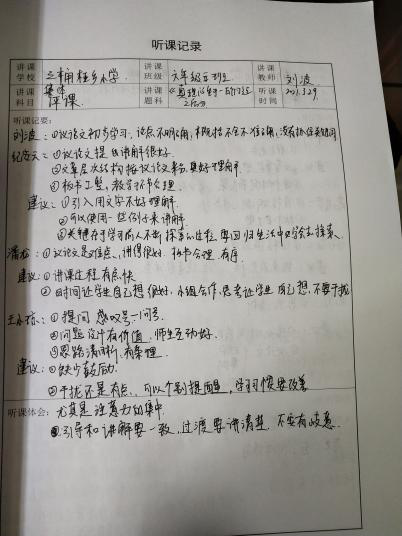 听课记录
讲课学校 三桷桠乡小学 讲课班级 六年级五班 讲课教师 刘波
讲课科目 集体评课 讲课题科 《真理诞生于一百个问号之后》 听课时间 2021.3.29
听课记要:
刘波:①议论文初步学习,论点不明确,概括不全不准确,没有抓住关键词
①议论文提 讲解很好.
②文章层次结构按议论文来分,更好理解.
③板书工整,教学环节合理.
建议:①引入用文字不好理解.
②可以使用一些例子来讲解.
③关键在于学习前人不断探索的过程,要回归生活中的 去探入.
①议论文是难点,讲得很好,板书合理,有序.
建议:①讲课过程有点快
②时间让学生自己想很好,小组合作,思考让学生自己想,不要干扰
①提问 感叹号—问号.
②问题设计有价值,师生互动好.
③思路清晰,有条理.
建议:①缺少鼓励.
②干扰不是有点,可以个别提醒,学习习惯要改善
听课体会:尤其是注意力的集中.
③引导和讲解要一致,过渡要讲清楚,不要有歧意.